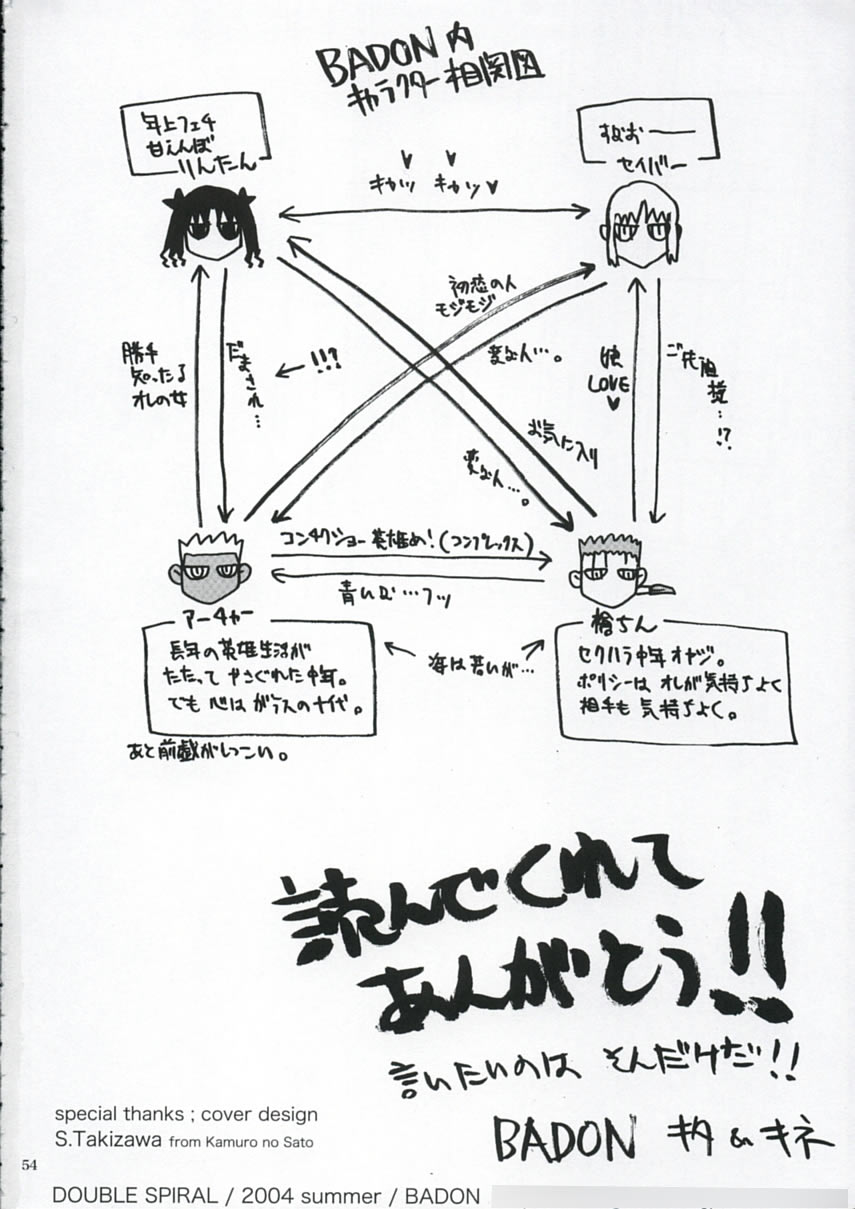 BADON内
キャラクター相関図
年上フェチ
甘えんぼ
りんたん
すなおー
セイバー
キャッ キャッ
初恋の人
モジモジ
変な人…。
勝手
知ったる
オレの女
だまされ…
!!?
娘
LOVE
ご先祖様…!?
お気に入り
変な人…。
コンチクショー英雄め!(コンプレックス)
青いな…フッ
アーチャー
長年の英雄生活が
たたって やさぐれた中年。
でも 心は ガラスの十代。
あと前戯がしつこい。
海は若いが…
槍ちん
セクハラ中年オヤジ。
ポリシーは オレが気持ちよく
相手も 気持ちよく。
読んでくれて
あんがとう!!
言いたいのは そんだけだ!!
BADON キタ&キネ
special thanks ; cover design
S.Takizawa from Kamuro no Sato
54
DOUBLE SPIRAL / 2004 summer / BADON